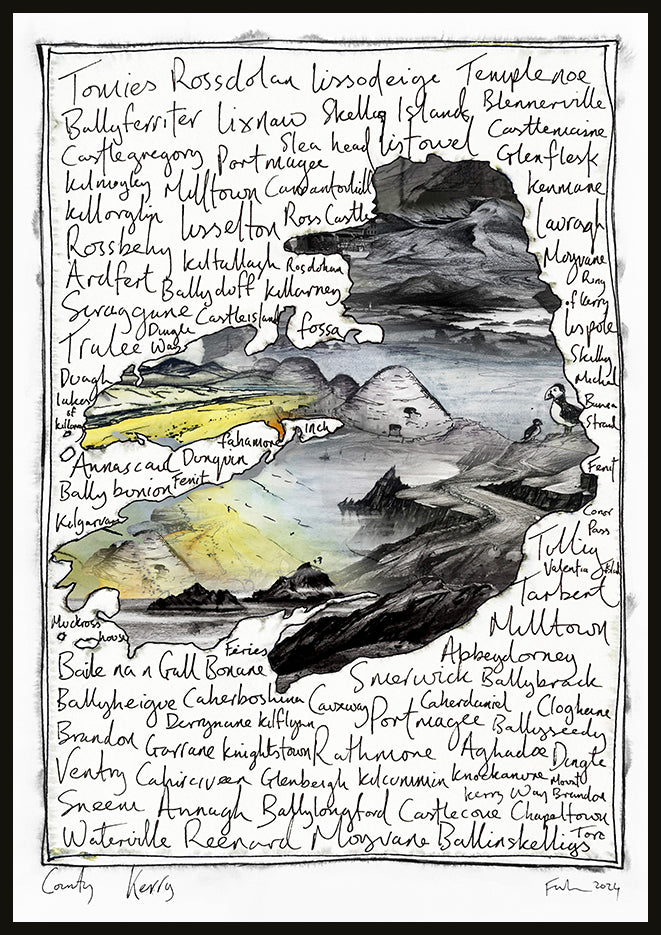 Tomies Rossdolan Lissodeige Templenoe
Ballyferriter Lixnaw Skellig Islands Blennerville
Castlegregory Portmagee Slea head Listowel Castlemaine
Kilmoyley Milltown Carrantoohill Glenflesk
Killorglin Lisselton Ross Castle Kenmare
Rossbehy Kiltallagh Rosdohan Lauragh
Ardfert Ballyduff Killarney Moyvane
Scraggane Castleisland Ring of Kerry
Tralee Dingle Way Fossa Lispole
Duagh Skellig Michael
Lakes of Killarney Strand
Fahamore Inch
Annascaul Dunquin Fenit
Ballybunion Fenit
Kilgarvan Conor Pass
Tullig
Valentia Island
Tarbert
Muckross house Milltown
Feries Abbeydorney
Baile na n Gall Bonane Smerwick Ballybrack
Ballyheigue Caherboshina Causway Caherdaniel Cloghane
Derrynane Kilflynn Portmagee Ballyseedy
Brandon Garrane Knightstown Rathmore Aghadoe Dingle
Ventry Cahirciveen Glenbeigh Kilcummin Knockanure Mount Brandon
Kerry Way
Sneem Annagh Ballylongford Castlecove Chapeltown
Waterville Reenard Moyvane Ballinskelligs Torc
County Kerry 2024